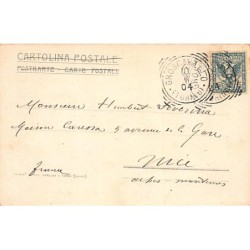 CARTOLINA POSTALE
POSTKARTE - CARTE POSTALE
04
Monsieur Humbert
Maison Caressa 5 avenue de la Gare
Nice
alpes-maritimes
france